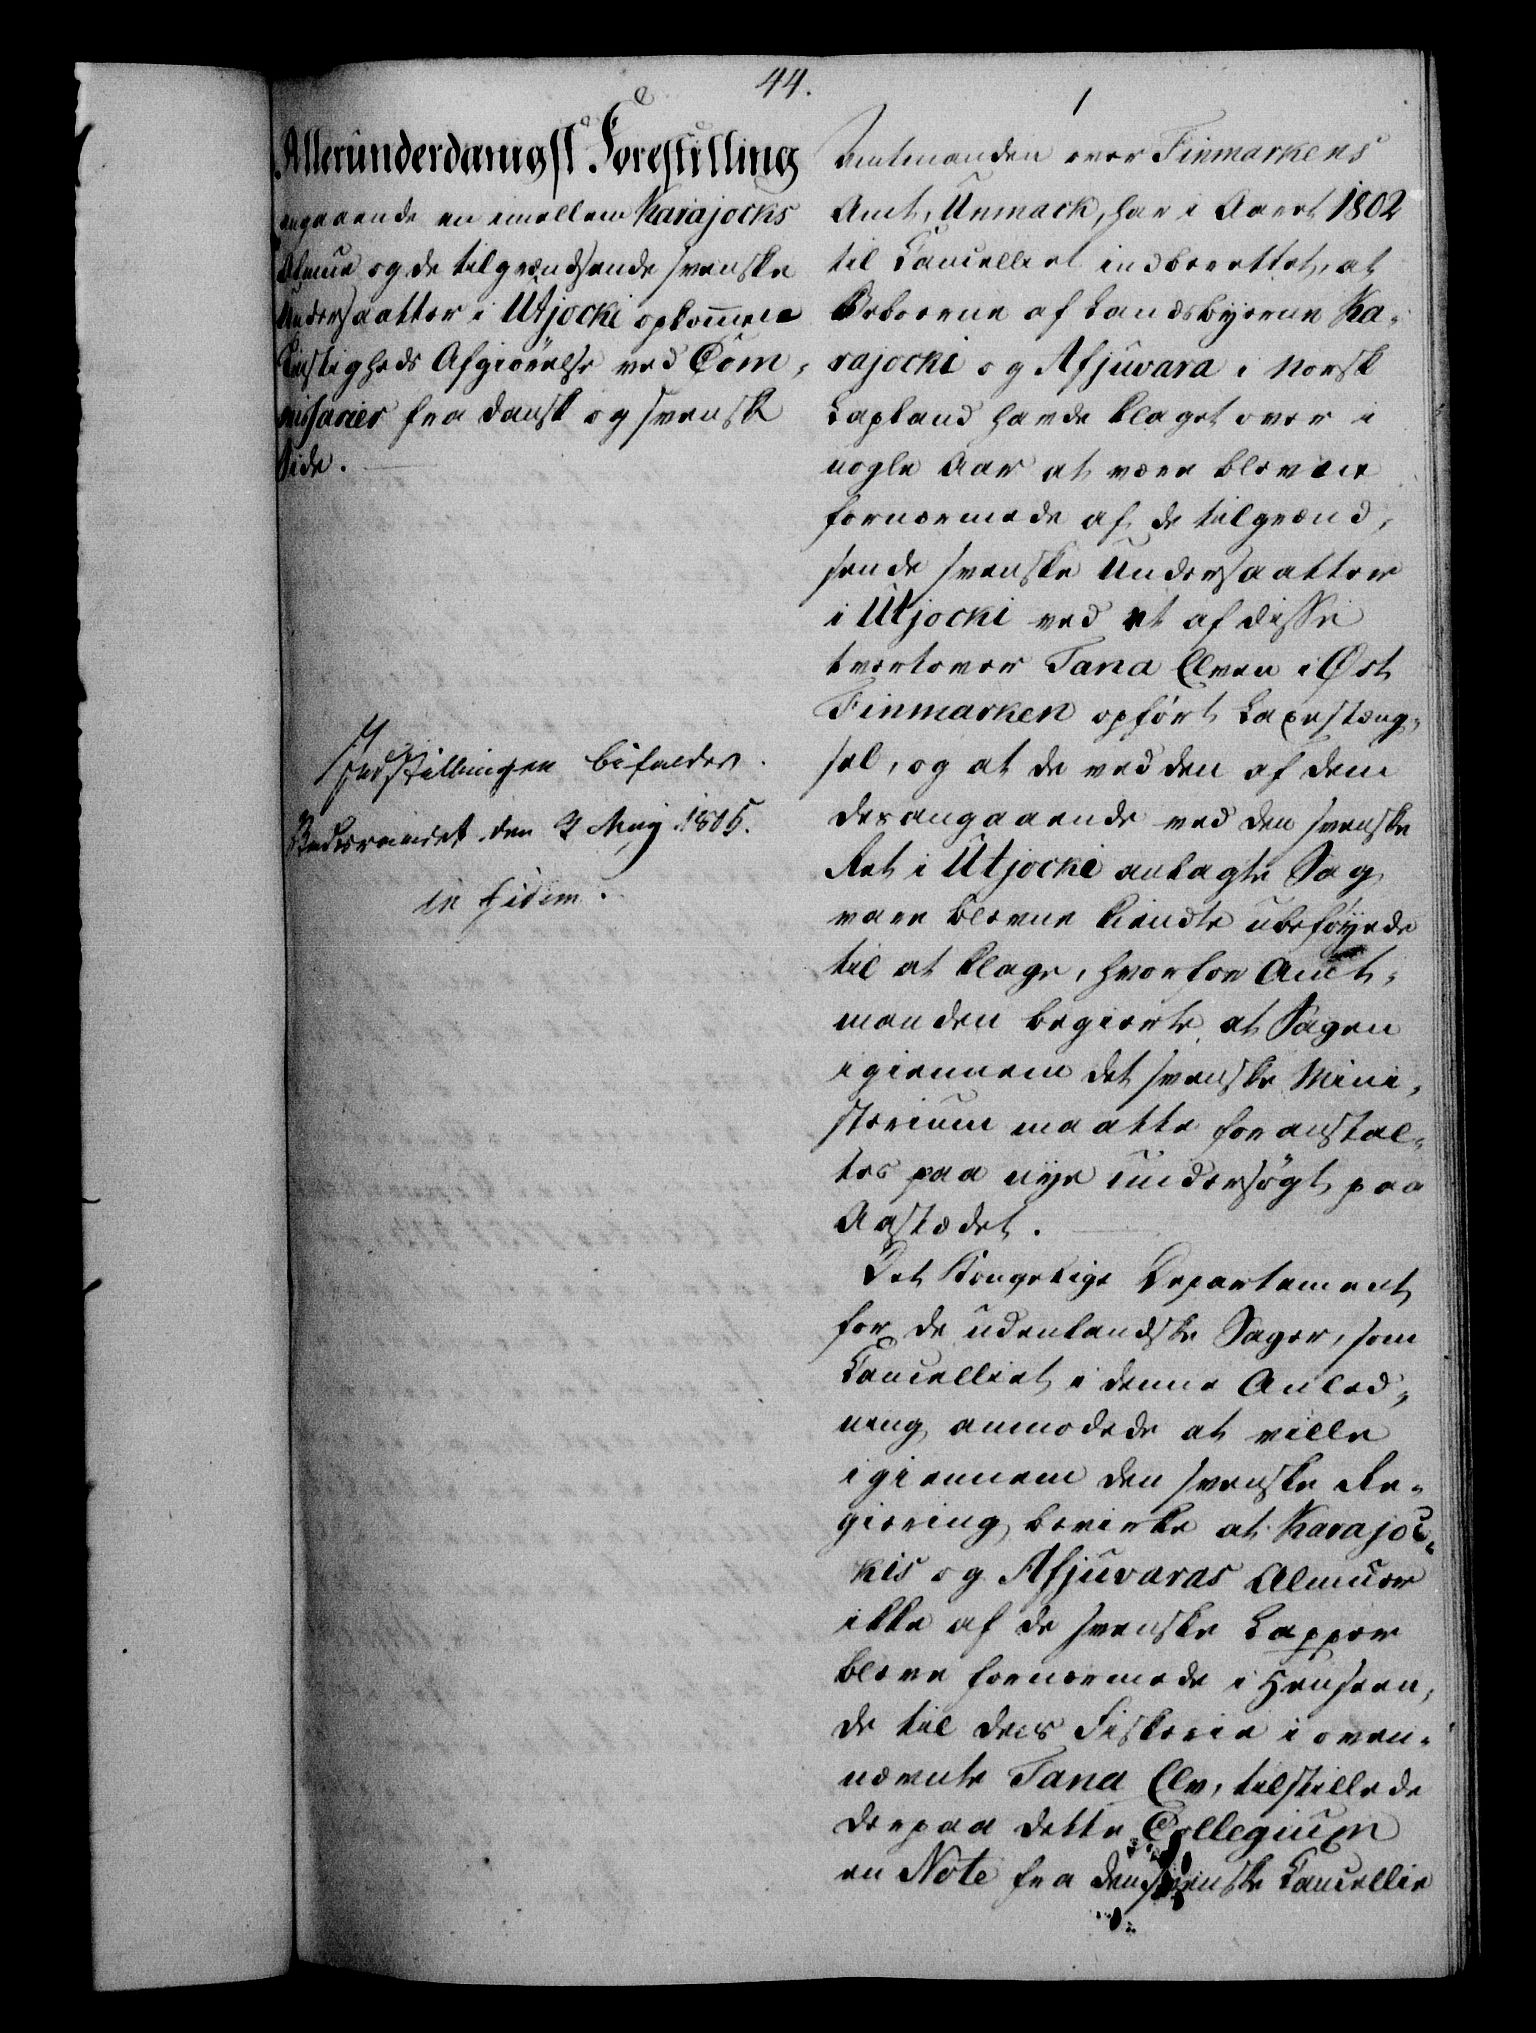 44.
Allerunderdanigst Forestilling
angaaende en imellem Karajocks
Almue og de tilgrændsende svenske
Undersaatter i Utjocki opkommen
Tvistigheds Afgiørelse ved Com,
missarier fra dansk og svensk
Side.
Indstillingen bifaldes.
den 9 May 1805.
in fidem.
Amtmanden over Finmarkens
Amt, Unmack, har i Aaret 1802
til Cancelliet indberettet, at
Beboerne af Landsbyerne Ka,
rajocki og Afjuvara i Norsk
Lapland havde klaget over i
nogle Aar at være blevne
fornærmede af de tilgrænd,
sende svenske Undersaatter
i Utjocki ved et af disse
tvertover Tana Elven i Øst
Finmarken opført Laxestæng,
sel, og at de ved den af dem
desangaaende ved den svenske
Ret i Utjocki anlagte Sag
vare blevne kiendte ubeføyede
til at klage, hvorfor Amt,
manden begierte at Sagen
igiennem det svenske Mini,
sterium maatte foranstal,
tes paa nye undersøgt paa
Aastædet.
Det Kongelige Departement
for de udenlandske Sager, som
Cancelliet i denne Anled,
ning anmodede at ville
igiennem den svenske Re,
giering bevirke at Karajoc,
kis og Afjuvaras Almuer
ikke af de svenske Lapper
bleve fornærmede i Henseen,
de til deres Fiskerie i oven,
nævnte Tana Elv, tilstillede
derpaa dette Collegium
en Note fra den svenske Cancellie